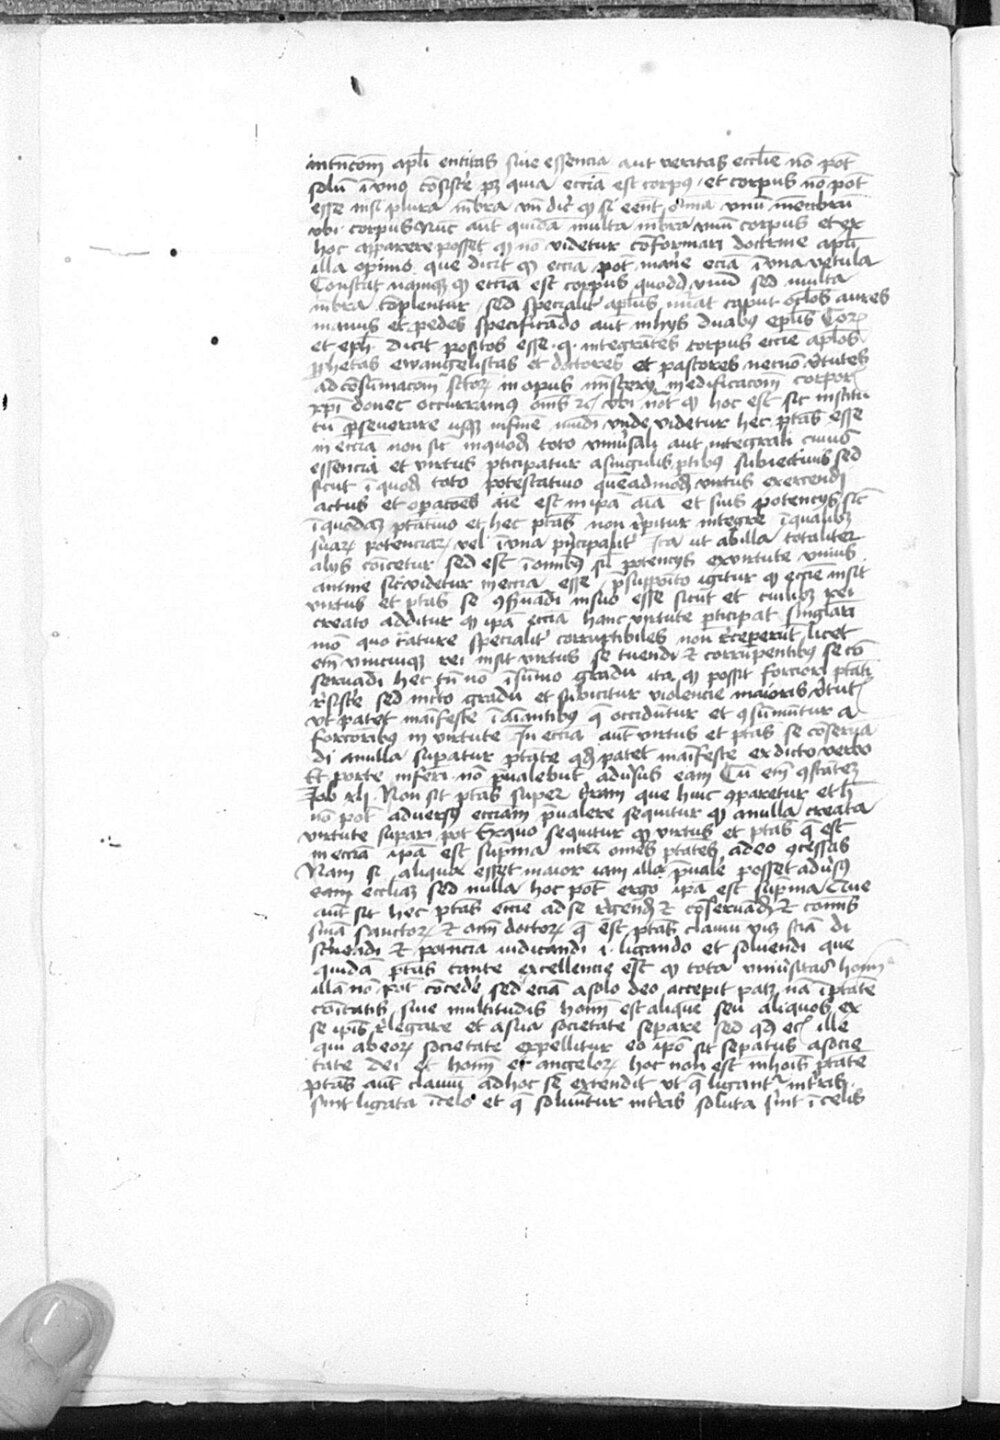 intencōm apli entitas siue essencia aut veritas ecclie nō pot
solū ī vno cōsiste pȝ quia eccia est corpus et corpus nō pot
esse nisi plura mbra vn dic̄ qȝ si eent oīna vnū membrū
vbi corpus Nunc aut quidā multa mbra vnū corpus et ex
hoc apparere posset qȝ nō videtur conformari doctrine apli
illa opinio que dicit qȝ eccia pot mane eciā ī vna vetula
Constat namqȝ qȝ eccia est corpus quodd vnū sed multa
mbra complentur sed specialit aplus nūat caput oclos aures
manus et pedes specificādo aut in hys duabȝ eplis Cor
et eph dicit positos esse qȝ integrātes corpus eccie aplos
pphetas ewangelistas et doctores et pastores necnō vtutes
ad cōsūmacōm sctoꝝ in opus misterij in edificacōm corpor
xpi donec occurramȝ oms ⁊c vbi not qȝ hoc est sic institu
tū pseuerare usqȝ in finē mūdi vnde videtur hec ptās esse
in eccia non sic in quod toto vniūsali aut integrali cuius
essencia et virtus pticipatur a singulis ptibȝ subiectiuis sed
sicut ī quod toto potestatiuo quēadmodȝ virtus exercendj
actus et opacōes aīe est in ipā aīa et suis potencijs sic
ī quodaȝ ptatiuo et hec ptās non rpitur integre ī qualibȝ
suaꝝ potenciaꝝ vel ī vna principalit ita ut ab illa totaliter
alijs cōicetur sed est ī omnibȝ sil potencijs ex virtute vnius
anime sic videtur in eccia esse psuppōito igitur qȝ eccie insit
virtus et ptās se ɔseruādi in suo esse sicut et cuilibȝ rei
creato additur qȝ ipā eccia hanc virtute pticipat singlari
mō quo cature specialit corruptibiles non receperūt licet
etm vnicuiqȝ rei insit virtus se tuendi ⁊ corrupentibȝ se cō
seruādi hec tn nō ī sūmo gradu ita qȝ possit forciori ptati
resiste sed in cto gradu et subicitur violencie maioris vtut
vt patet manifeste ī aīantibȝ q occiduntur et ɔsumuntur a
forcoribȝ in virtute In eccia aut virtus et ptās se cōserua
di a nulla supatur ptate qd patet manifeste ex dicto verbo
Et porte inferi nō pualebut aduersus eam Cū etm ɔstateȝ
Job xli Non sit ptās super terram que huic ɔparetur et h
nō pot aduersus ecciam pualere sequitur qȝ a nulla creata
virtute supari pot Ex quo sequitur qȝ virtus et ptās q est
in eccia ipā est supma inter omes ptates a deo ɔcessas
Nam si aliqua esset maior iam illa puale posset adusȝ
eam eccliaȝ sed nulla hoc pot ergo ipā est supma Cūue
aut sit hec ptās eccie ad se regend ⁊ cōseruād ⁊ comis
sina sanctoꝝ ⁊ oīm doctoꝝ q est ptās clauiu viȝ sciā di
scernēdi ⁊ potencia iudicandi i ligando et soluendi que
quidā ptās tante excellencie est qȝ tota vniūsitas homm
illā nō pot cōcede sed eciā a solo deo accepit patȝ nā ī ptate
cōitatis siue multitudis homm est aliquē seu aliquos ex
se ipis relegare et a sua societate separe sed qd ec ille
qui ab eoꝝ societate expellitur eo ipō sit sepatus a socie
tate dei et homm et angeloꝝ hoc non est in hois ptate
ptās aut clauiū ad hoc se extendit vt q ligant in tris
sint ligata ī celo et q soluuntur in tris soluta sint ī celis